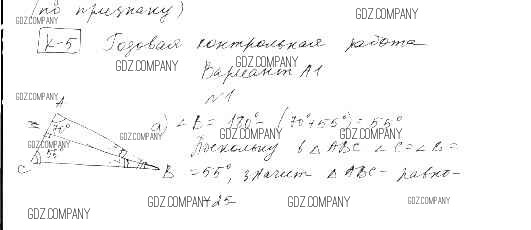 (по признаку)
GDZ.COMPANY
GDZ.COMPANY
К-5 Годовая контрольная работа
GDZ.COMPANY GDZ.COMPANY
Вариант А1
GDZ.COMPANY
№1
A
70°
а) ∠B = 180° - (70°+55°) = 55°
GDZ.COMPANY GDZ.COMPANY GDZ.COMPANY
GDZ.COMPANY
Поскольку в △ABC ∠C = ∠B =
55
C
B
= 55°, значит △ABC - равно-
GDZ.COMPANY 25 GDZ.COMPANY GDZ.COMPANY
GDZ.COMPANY